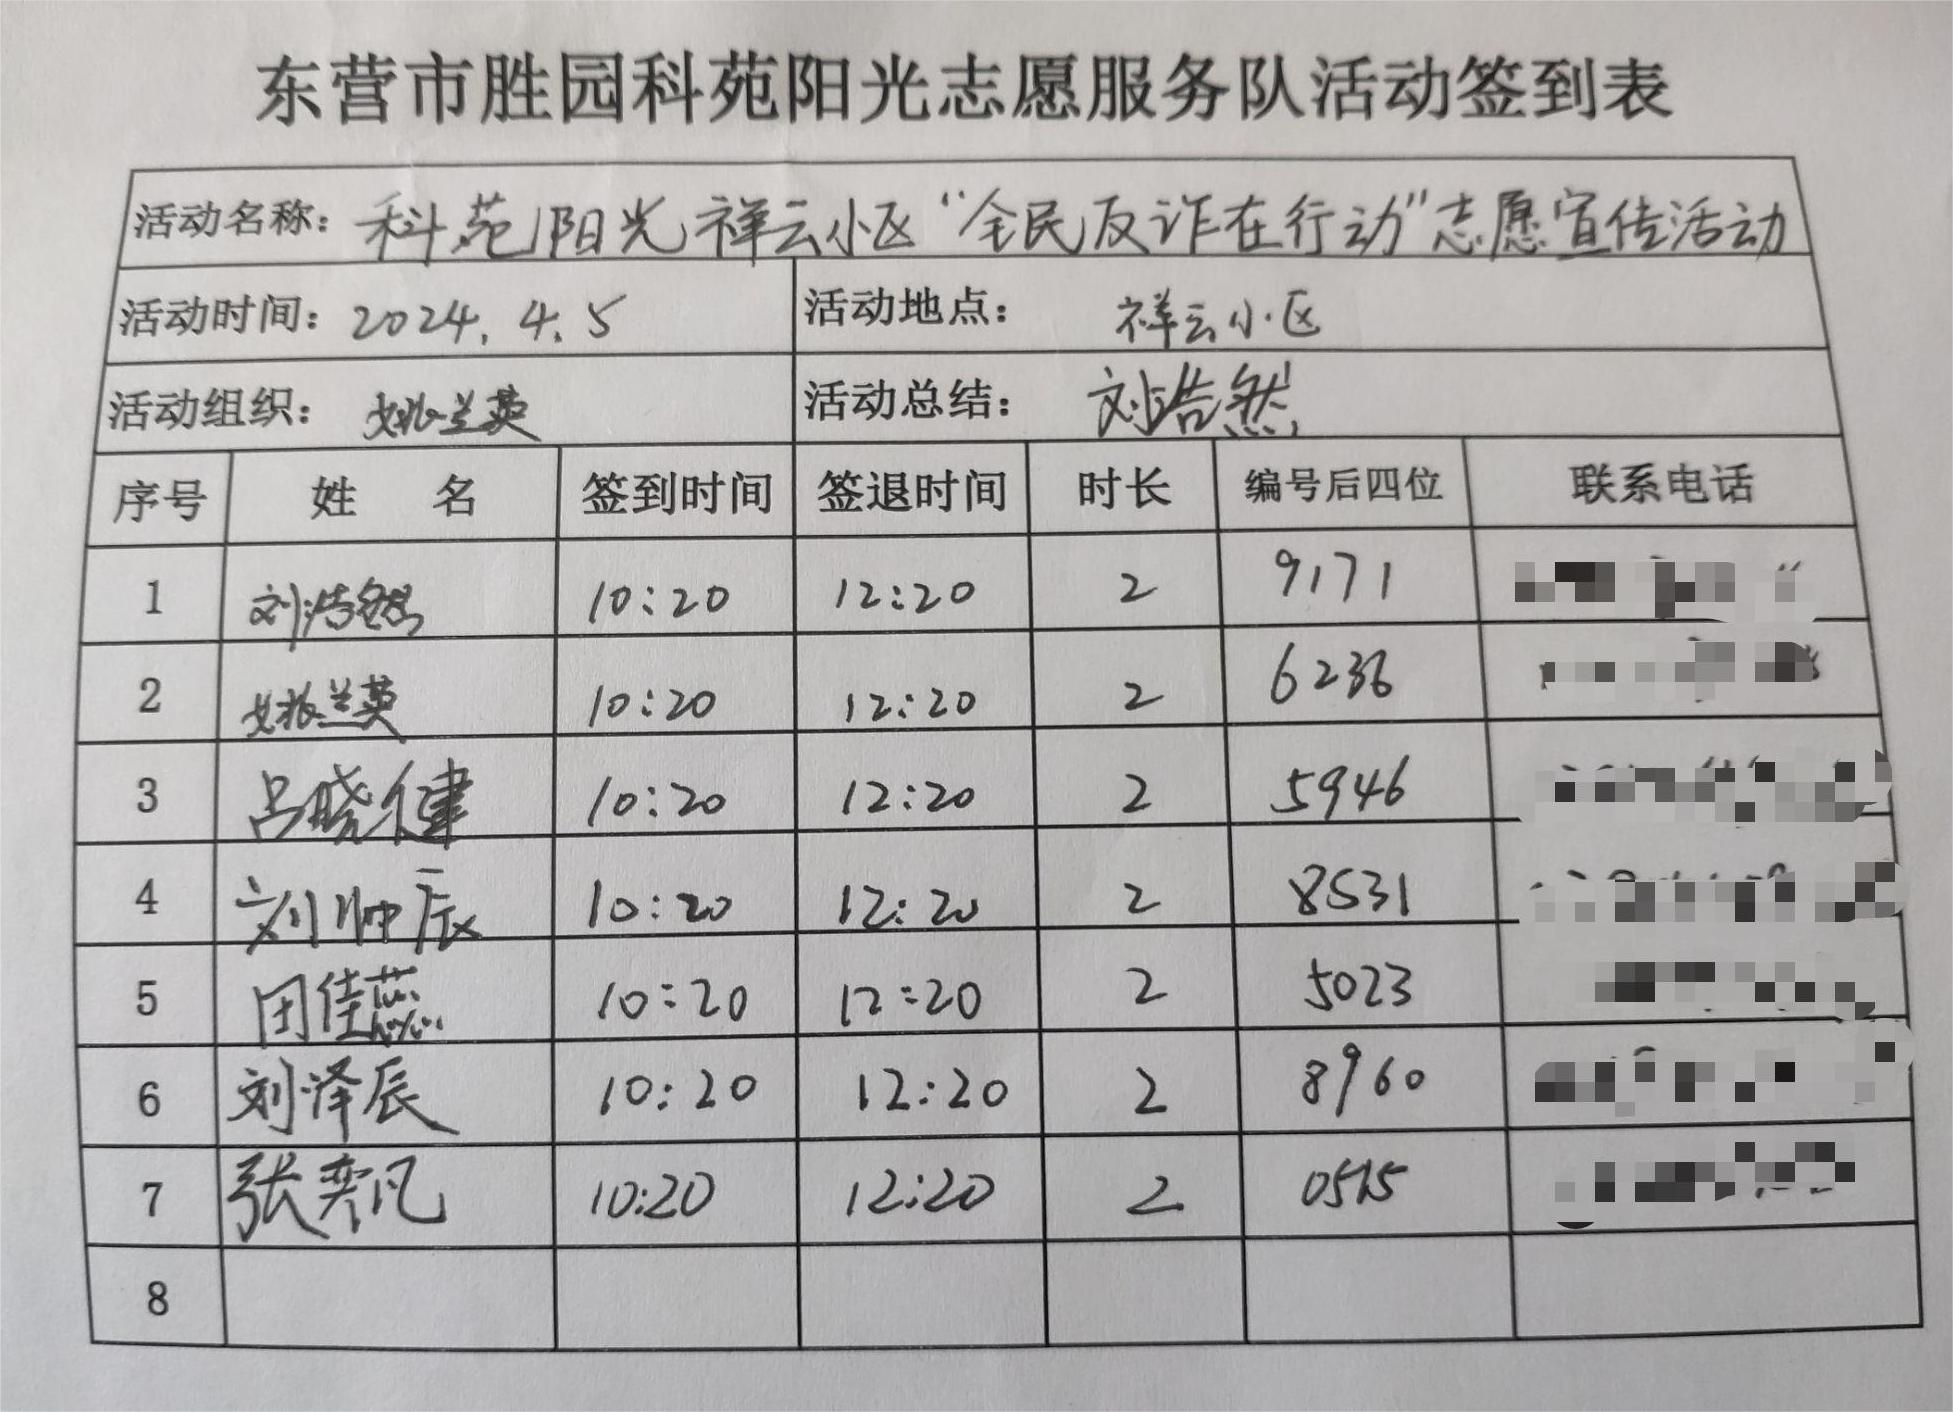 东营市胜园科苑阳光志愿服务队活动签到表
活动名称：科苑阳光祥云小区“全民反诈在行动”志愿宣传活动
活动时间：2024.4.5 活动地点：祥云小区
活动组织：姚兰英 活动总结：刘浩然
序号 姓 名 签到时间 签退时间 时长 编号后四位 联系电话
1 刘浩然 10:20 12:20 2 9171
2 姚兰英 10:20 12:20 2 6236
3 吕晓健 10:20 12:20 2 5946
4 刘帅辰 10:20 12:20 2 8531
5 田佳蕊 10:20 12:20 2 5023
6 刘泽辰 10:20 12:20 2 8960
7 张奕凡 10:20 12:20 2 0515
8